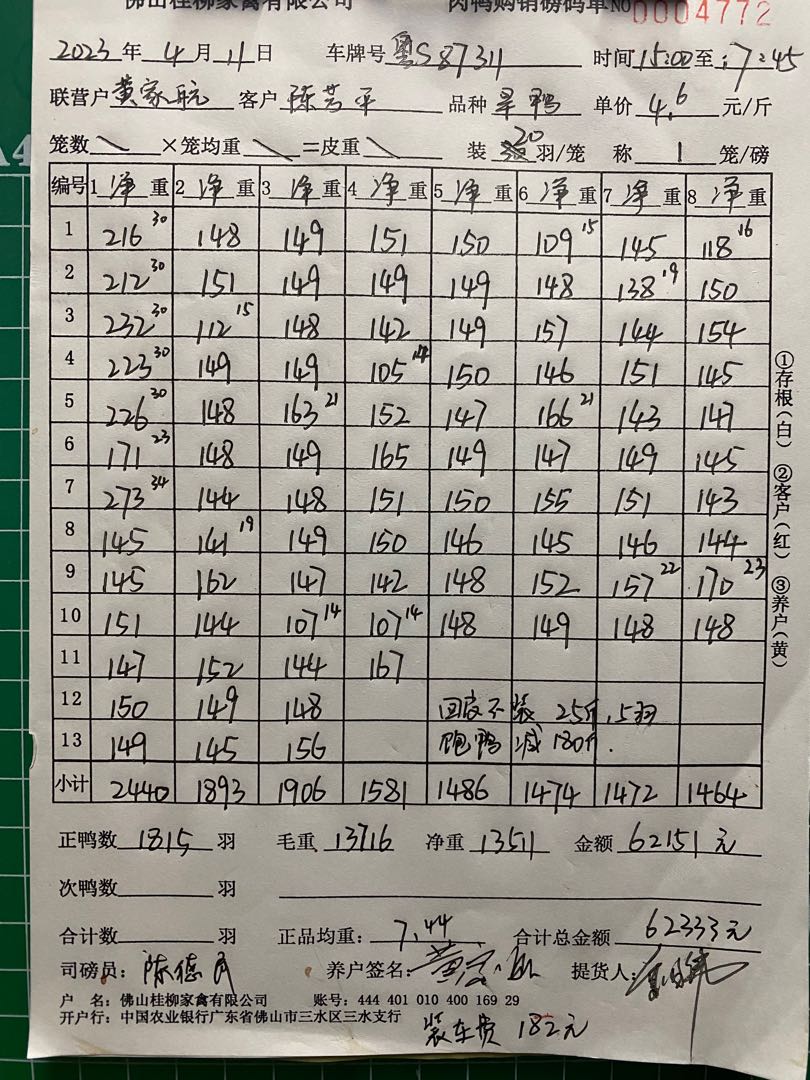 佛山桂柳家禽有限公司 肉鸭购销磅码单 NO 0004772
2023年4月11日 车牌号 粤S87311 时间 15:00至17:45
联营户 黄家航 客户 陈芳平 品种 旱鸭 单价 4.6 元/斤
笼数 \ ×笼均重 \ =皮重 \ 装 20 羽/笼 称 1 笼/磅
编号 1 净重 2 净重 3 净重 4 净重 5 净重 6 净重 7 净重 8 净重
1 216 30 148 149 151 150 109 15 145 118 16
2 212 30 151 149 149 149 148 138 19 150
3 232 30 112 15 148 142 149 157 144 154
4 223 30 149 149 105 14 150 146 151 145
5 226 30 148 163 21 152 147 166 21 143 147
6 171 23 148 149 165 149 147 149 145
7 273 34 144 148 151 150 155 151 143
8 145 141 19 149 150 146 145 146 144
9 145 162 147 142 148 152 157 22 170 23
10 151 144 107 14 107 14 148 149 148 148
11 147 152 144 167
12 150 149 148 回家不装 25斤,5羽
13 149 145 156 饱鸭 减 180斤.
小计 2440 1893 1906 1581 1486 1474 1472 1464
正鸭数 1815 羽 毛重 13716 净重 13511 金额 62151元
次鸭数 羽
合计数 羽 正品均重: 7.44 合计总金额 62333元
司磅员: 陈德 养户签名: 黄 提货人:
户 名: 佛山桂柳家禽有限公司 账号: 444 401 010 400 169 29
开户行: 中国农业银行广东省佛山市三水区三水支行
装车费 182元
①存根(白) ②客户(红) ③养户(黄)